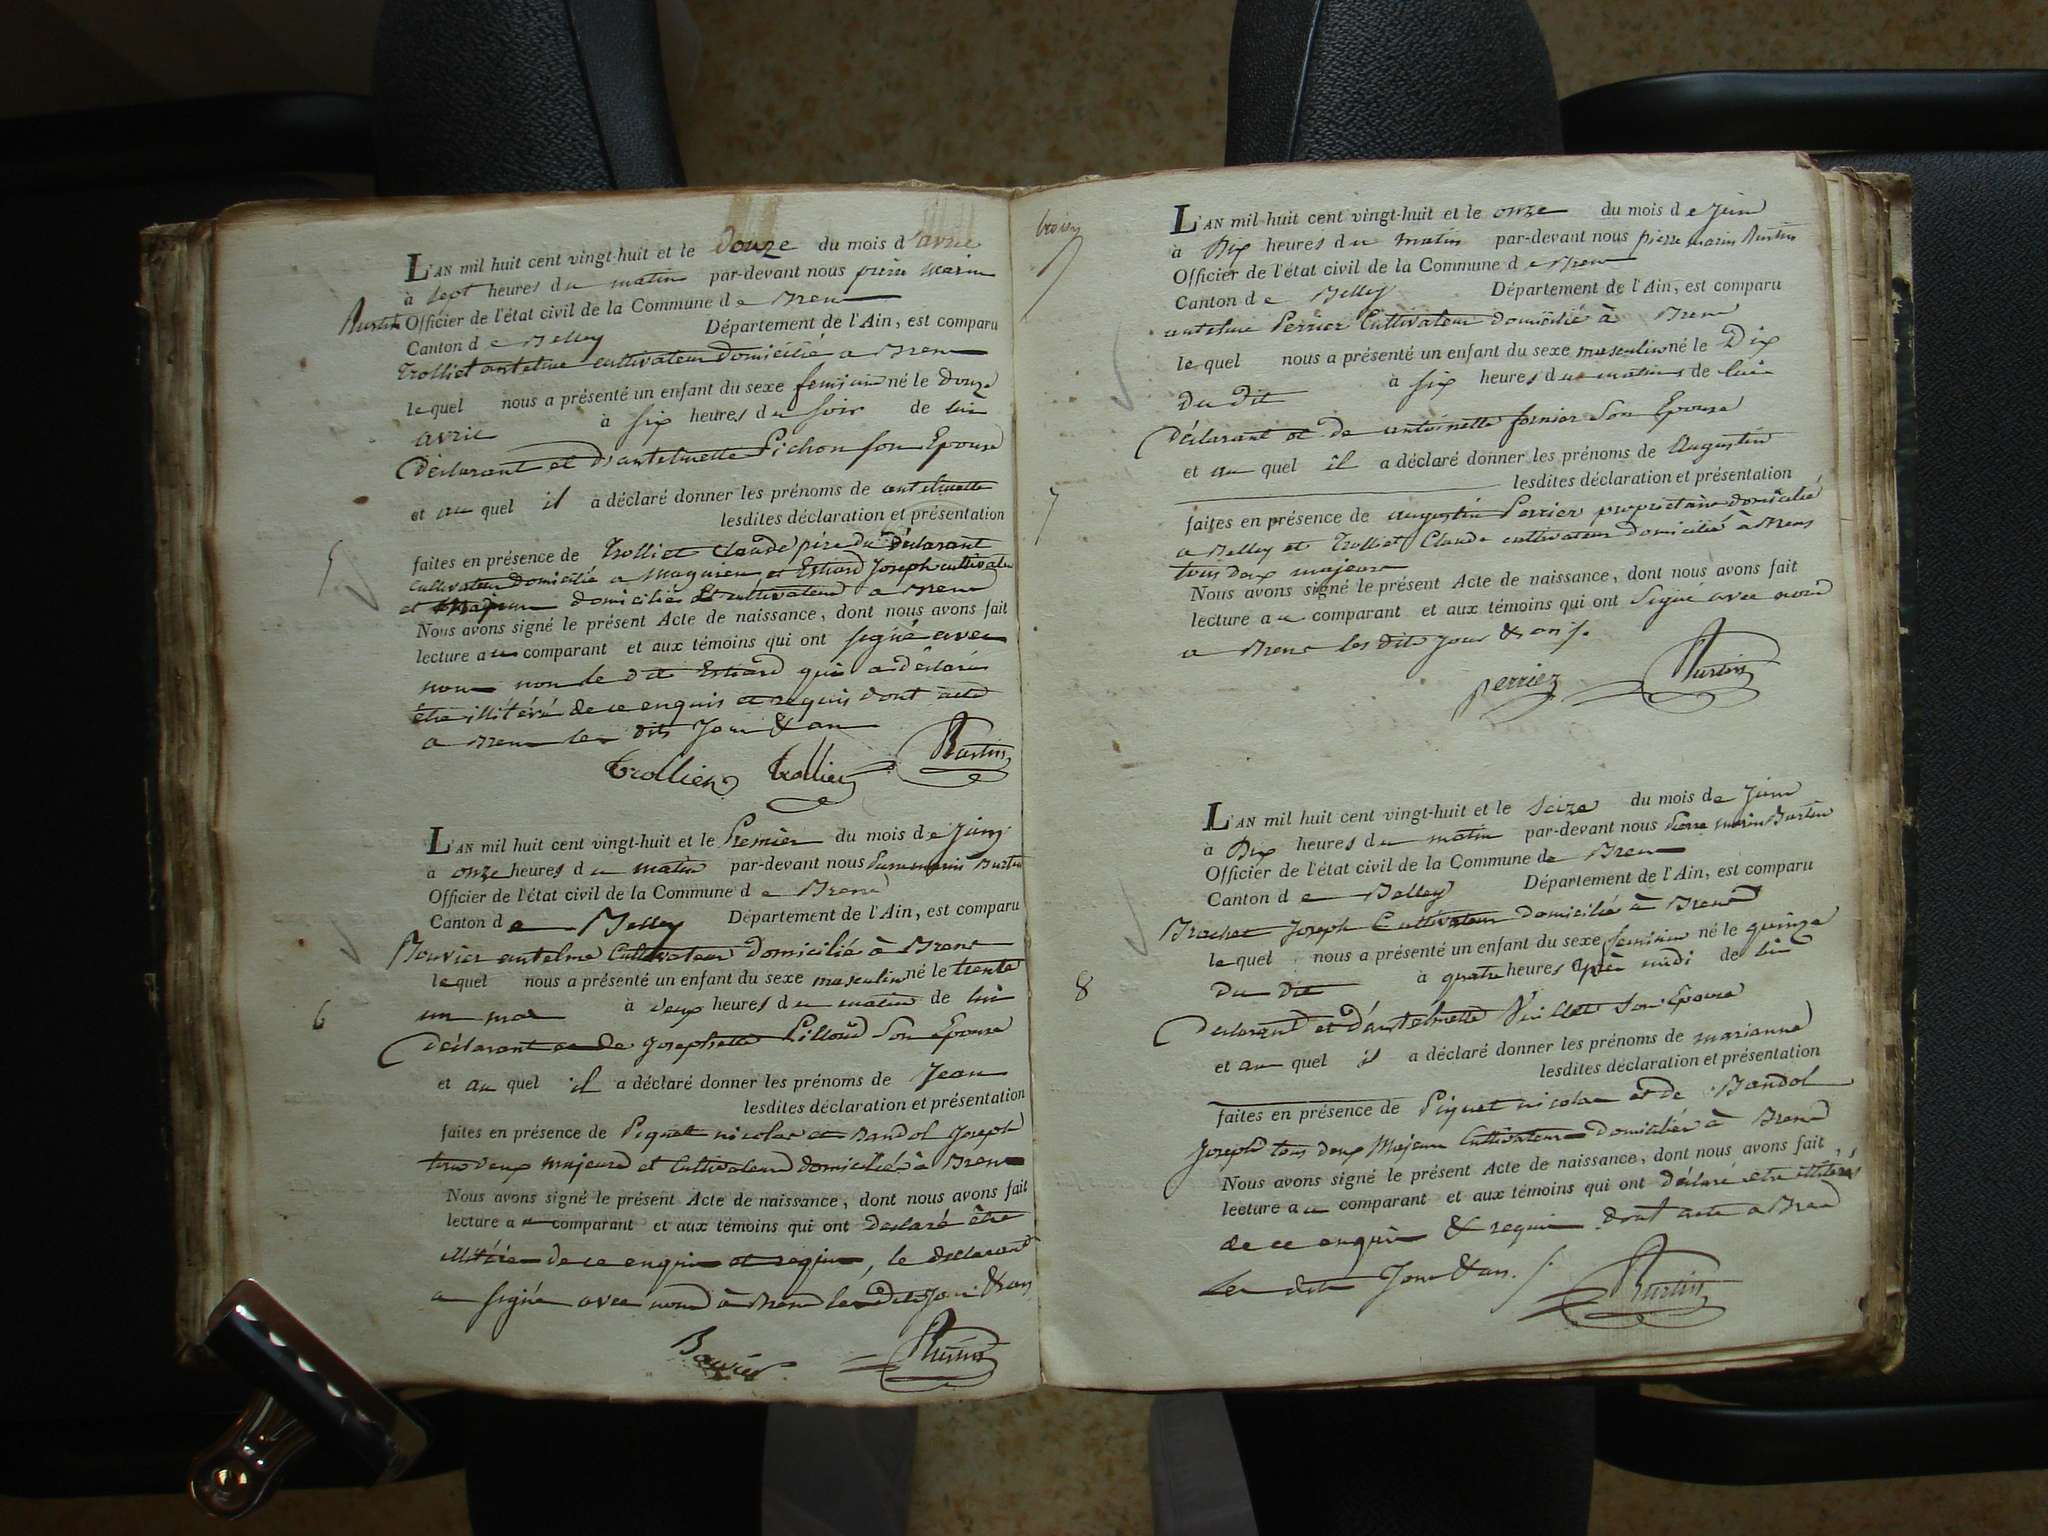 L'AN mil huit cent vingt-huit et le douze du mois d'avril
à sept heures du matin par-devant nous pierre marin
Burtin Officier de l'état civil de la Commune de Brens
Canton de Belley Département de l'Ain, est comparu
trolliet antelme cultivateur domicilié a Brens
lequel nous a présenté un enfant du sexe feminin né le douze
avril à six heures du soir de lui
déclarant et d'antelmette Pichon son Epouse
et auquel il a déclaré donner les prénoms de antelmette
lesdites déclaration et présentation
5
faites en présence de trolliet Claude père du déclarant
cultivateur domicilié a Magnieu et Joseph cultivateur
et domicilié a Brens
Nous avons signé le présent Acte de naissance, dont nous avons fait
lecture au comparant et aux témoins qui ont signé avec
nous non le dit qui a déclaré
être illitéré de ce enquis et requis dont acte
a Brens les dits Jour & an
trollier trollier Burtin
L'AN mil huit cent vingt-huit et le Premier du mois de Juin
à onze heures du matin par-devant nous Pierre marin Burtin
Officier de l'état civil de la Commune de Brens
Canton de Belley Département de l'Ain, est comparu
Bouvier antelme Cultivateur domicilié à Brens
lequel nous a présenté un enfant du sexe masculin né le trente
un mai à deux heures du matin de lui
6
déclarant et de Josephette Pilloud Son Epouse
et auquel il a déclaré donner les prénoms de Jean
lesdites déclaration et présentation
faites en présence de Piquet nicolas et Bandol Joseph
tous deux majeurs et Cultivateurs domiciliés à Brens
Nous avons signé le présent Acte de naissance, dont nous avons fait
lecture au comparant et aux témoins qui ont déclaré être
illitérés de ce enquis et requis, le déclarant
a signé avec nous à Brens les dits Jour & an
Bouvier Burtin
L'AN mil huit cent vingt-huit et le onze du mois de Juin
à Dix heures du matin par-devant nous pierre marin Burtin
Officier de l'état civil de la Commune de Brens
Canton de Belley Département de l'Ain, est comparu
antelme Perrier Cultivateur domicilié à Brens
lequel nous a présenté un enfant du sexe masculin né le Dix
du dit à six heures du matin de lui
déclarant et de antoinette fornier Son Epouse
et auquel il a déclaré donner les prénoms de Augustin
lesdites déclaration et présentation
7
faites en présence de augustin Perrier proprietaire domicilié
a Belley et trolliet Claude cultivateur domicilié à Brens
tous deux majeurs
Nous avons signé le présent Acte de naissance, dont nous avons fait
lecture au comparant et aux témoins qui ont signé avec nous
a Brens les dits jour & an
perrier Burtin
L'AN mil huit cent vingt-huit et le Seize du mois de Juin
à Dix heures du matin par-devant nous Pierre marin Burtin
Officier de l'état civil de la Commune de Brens
Canton de Belley Département de l'Ain, est comparu
Brochet Joseph Cultivateur domicilié à Brens
lequel nous a présenté un enfant du sexe feminin né le quinze
du dit à quatre heures après midi de lui
8
Déclarant et d'antelmette Son Epouse
et auquel il a déclaré donner les prénoms de marianne
lesdites déclaration et présentation
faites en présence de Piquet nicolas et de Bandol
Joseph tous deux Majeurs Cultivateurs domiciliés à Brens
Nous avons signé le présent Acte de naissance, dont nous avons fait
lecture au comparant et aux témoins qui ont déclaré etre illiterés
de ce enquis & requis dont acte a Brens
les dits Jour & an
Burtin